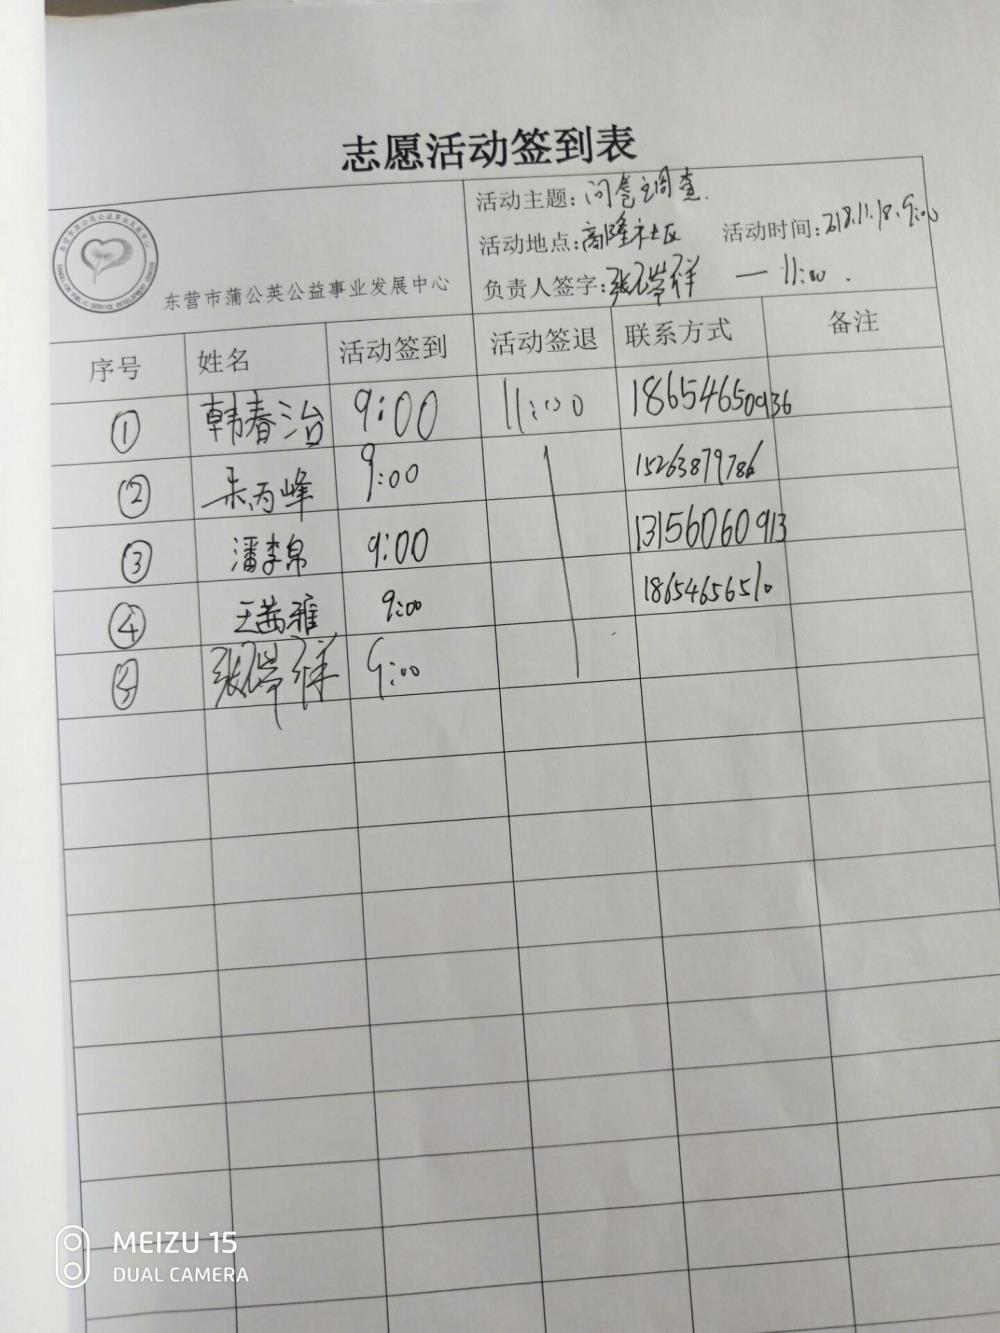 志愿活动签到表
东营市蒲公英公益事业发展中心
活动主题：问卷调查.
活动地点：高隆社区 活动时间：2018.11.18.9:00
负责人签字： — 11:00.
序号 姓名 活动签到 活动签退 联系方式 备注
① 韩春治 9:00 11:00 18654650936
② 朱丙峰 9:00 15263879786
③ 潘李帛 9:00 13156060913
④ 王茜雅 9:00 18654656510
⑤ 9:00
MEIZU 15
DUAL CAMERA